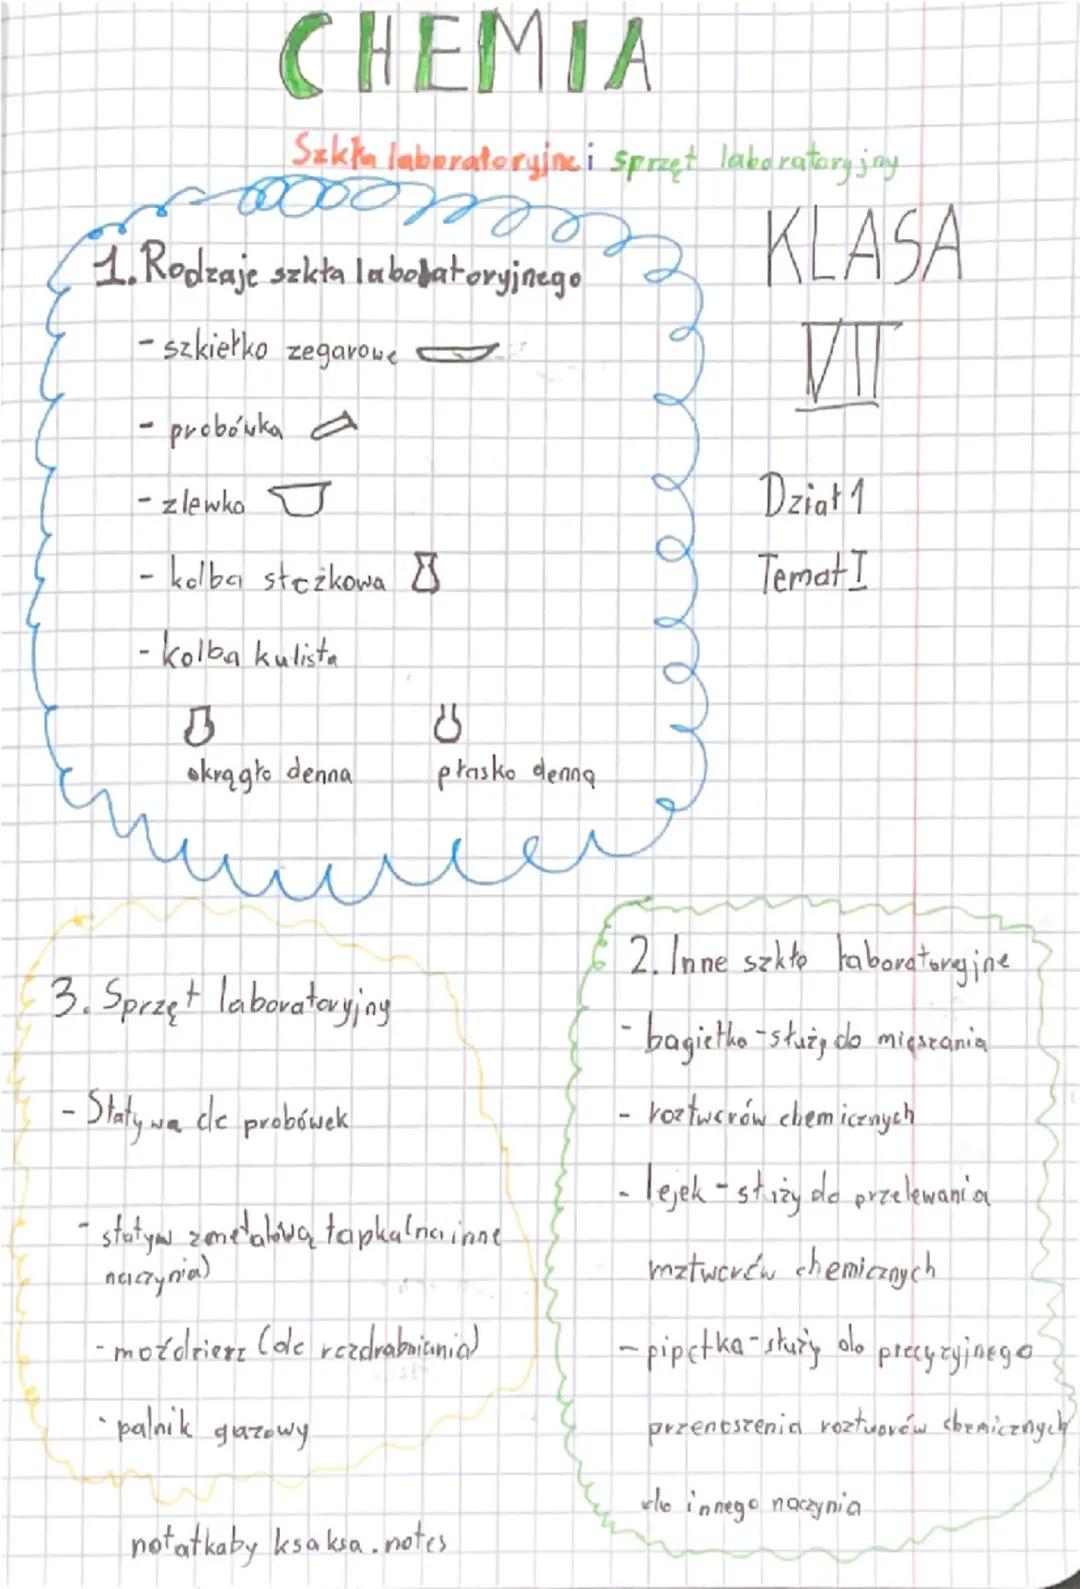 CHEMIA
Szkła laboratoryjne i sprzęt laboratoryjny
KLASA
VII
Dział 1
Temat I
1. Rodzaje szkła laboratoryjnego
- szkiełko zegarowe
- probówka
- zlewka
- kolba stożkowa
- kolba kulista
okrągło denna płasko denna
2. Inne szkło laboratoryjne
- bagietka - służy do mieszania
- roztworów chemicznych
- lejek - służy do przelewania
roztworów chemicznych
- pipetka - służy do precyzyjnego
przenoszenia roztworów chemicznych
do innego naczynia
3. Sprzęt laboratoryjny
- Statywa do probówek
- statyw z metalową łapką (na inne
naczynia)
- moździerz (do rozdrabniania)
- palnik gazowy
notatkaby ksaksa.notes